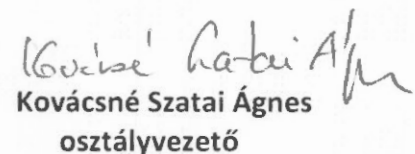 Kovácsné Szatai Á
Kovácsné Szatai Ágnes
osztályvezető